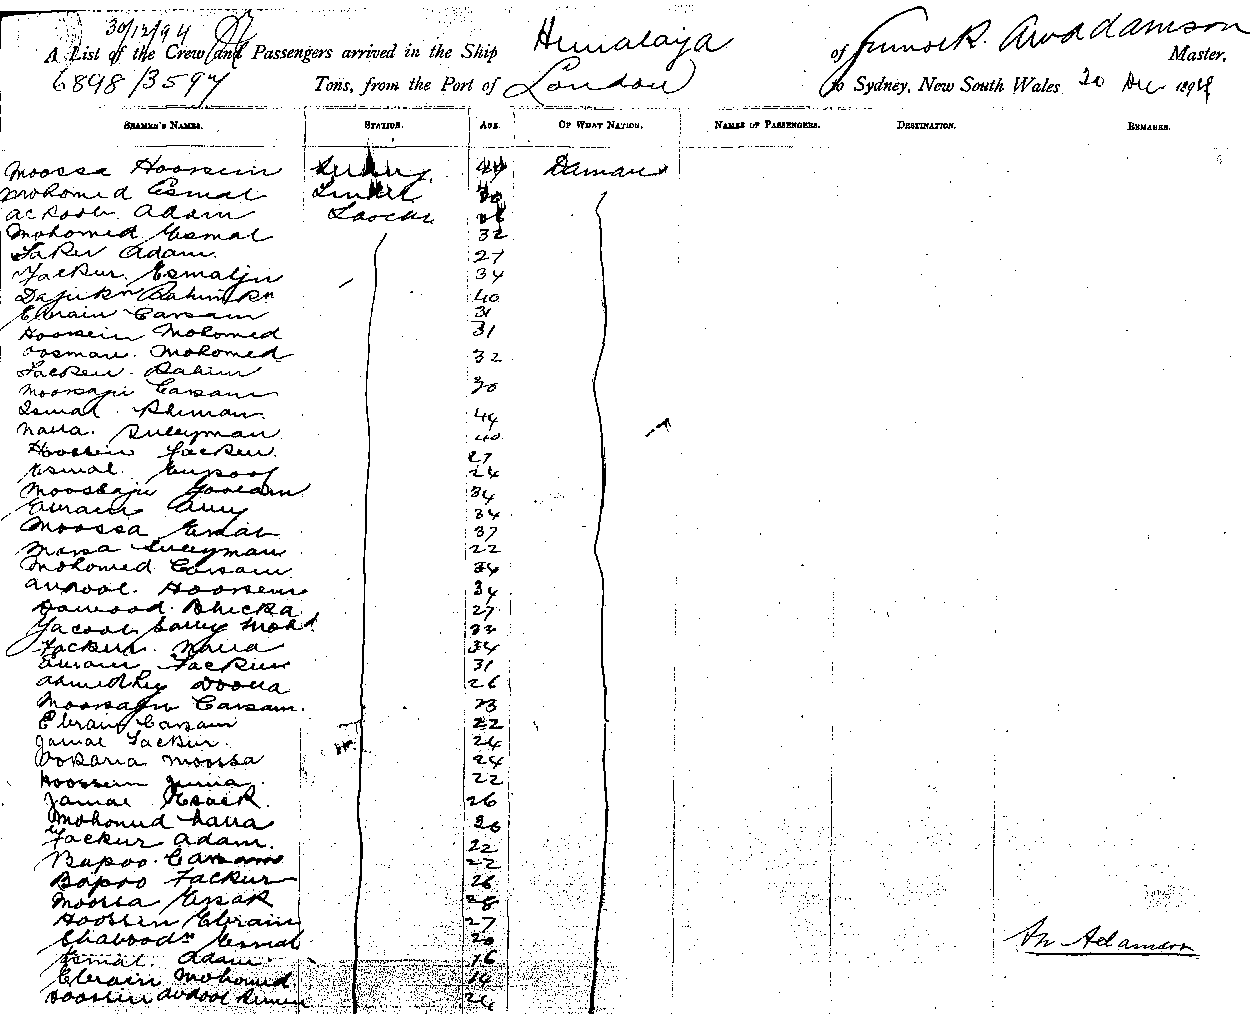 30/12/94
A List of the Crew and Passengers arrived in the Ship Himalaya of Greenock. Awadamson Master,
6898/3597 Tons, from the Port of London to Sydney, New South Wales 20 Dec 1894
SEAMEN'S NAMES. STATION. AGE. OF WHAT NATION. NAMES OF PASSENGERS. DESTINATION. REMARKS.
Moossa Hoossein 44 Daman
Mohomed Esmal Tindel 30
Ackoob Adam Lascar
Mohomed Esmal 32
Adam 27
Fackur Esmaljee 34
40
Ebraim Carsam 31
Hoossein Mohomed 31
Oosman Mohomed 32
Rahim
Moosajee Carsam 30
Esmal Rhiman 44
Nana Suleyman 40
Hoossein Fackur 27
Esmal Eusoof 24
Moosajee Goolam 34
Ebraim 34
Moossa Esmal 37
Moosa Suleyman 22
Mohomed Carsam 34
Audool Hoossein 34
Dawood Bhicka 27
Yacoob Mohd 33
Fackur Nana 34
Ebraim Fackur 31
26
Moosajee Carsam 23
Ebraim Carsam 22
Jamal Fackur 24
Moossa 24
Hoossein Juma 22
Jamal Esack 26
Mohomed Nana 26
Fackur Adam. 22
Bapoo Carsam 22
Bapoo Fackur 26
Moossa Essak 28
Hoossein Ebraim 27
Esmal 20
Esmal Adam 16
Ebraim Mohomed
Hoossein Audool 24
Adamson